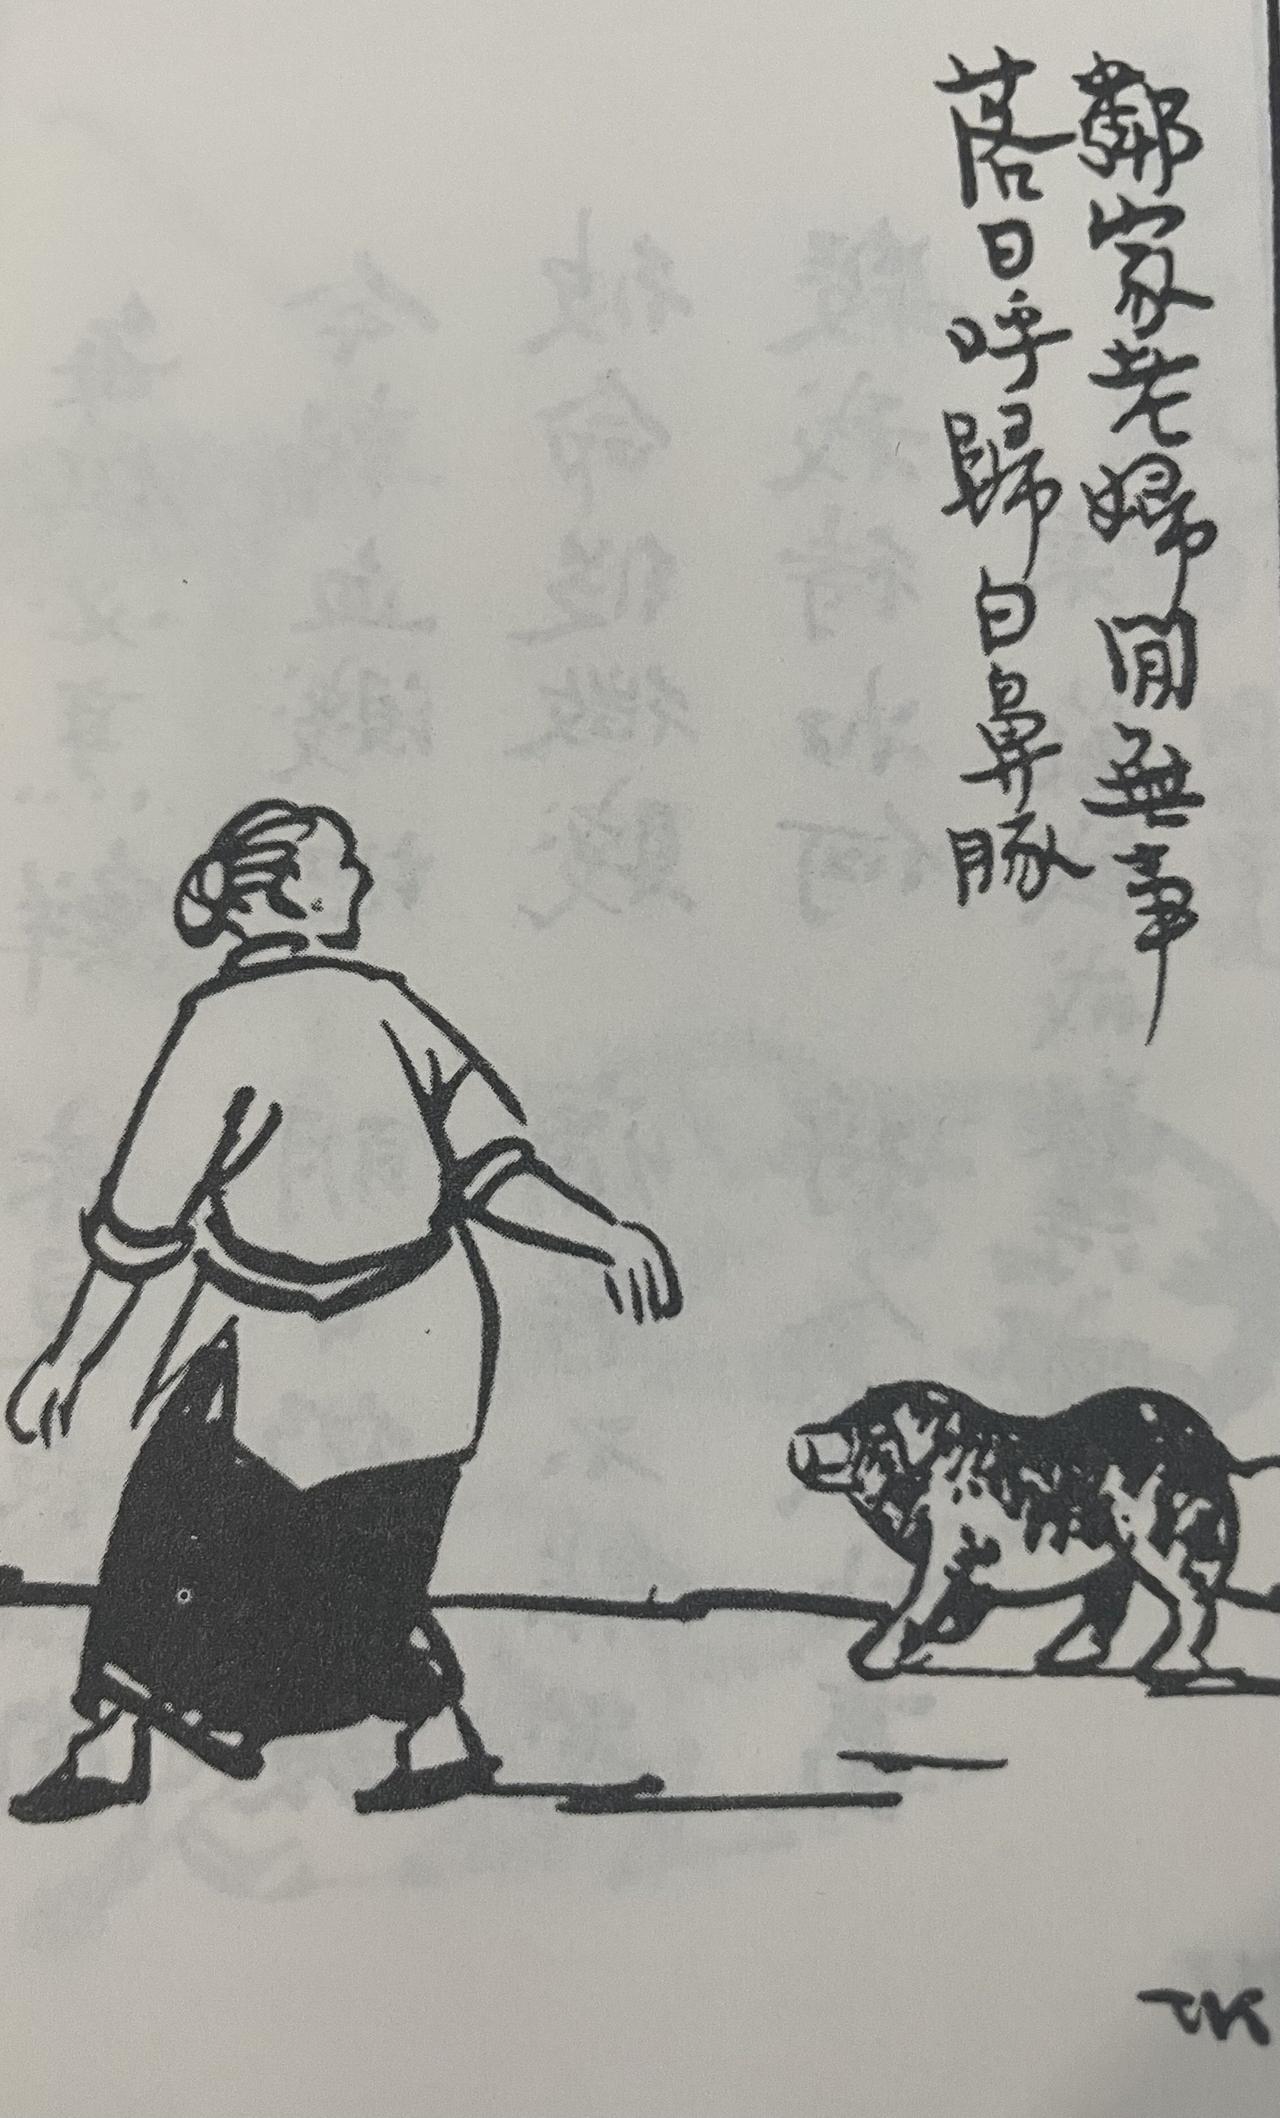 鄰家老婦閒無事
落日呼歸白鼻豚
TK